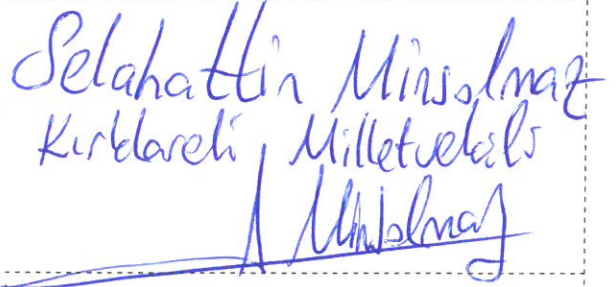 Selahattin Minsolmaz
Kırklareli Milletvekili
Minsolmaz